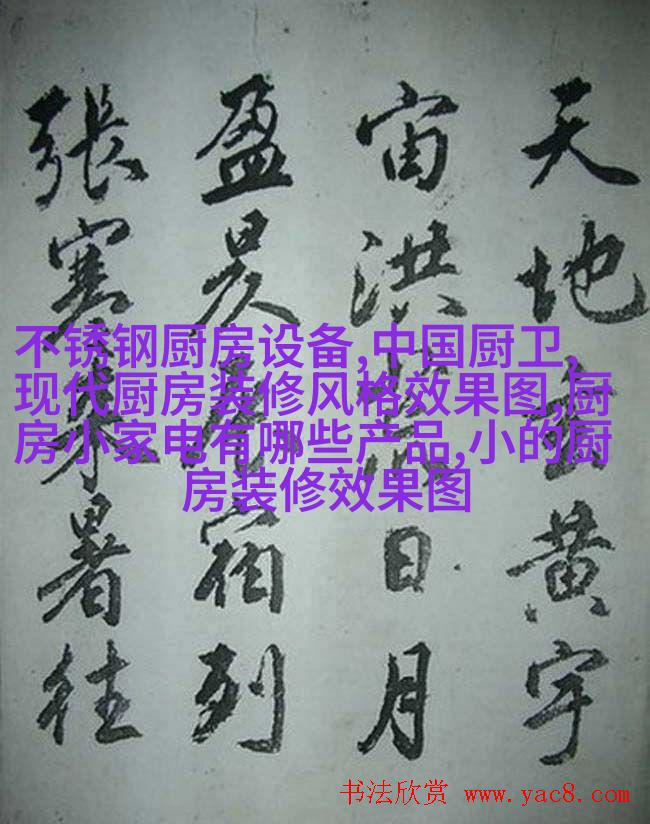 天地玄黄宇
宙洪荒日月
盈昃辰宿列
張寒來暑往
不锈钢厨房设备,中国厨卫,
现代厨房装修风格效果图,厨
房小家电有哪些产品,小的厨
房装修效果图
书法欣赏 www.yac8.com